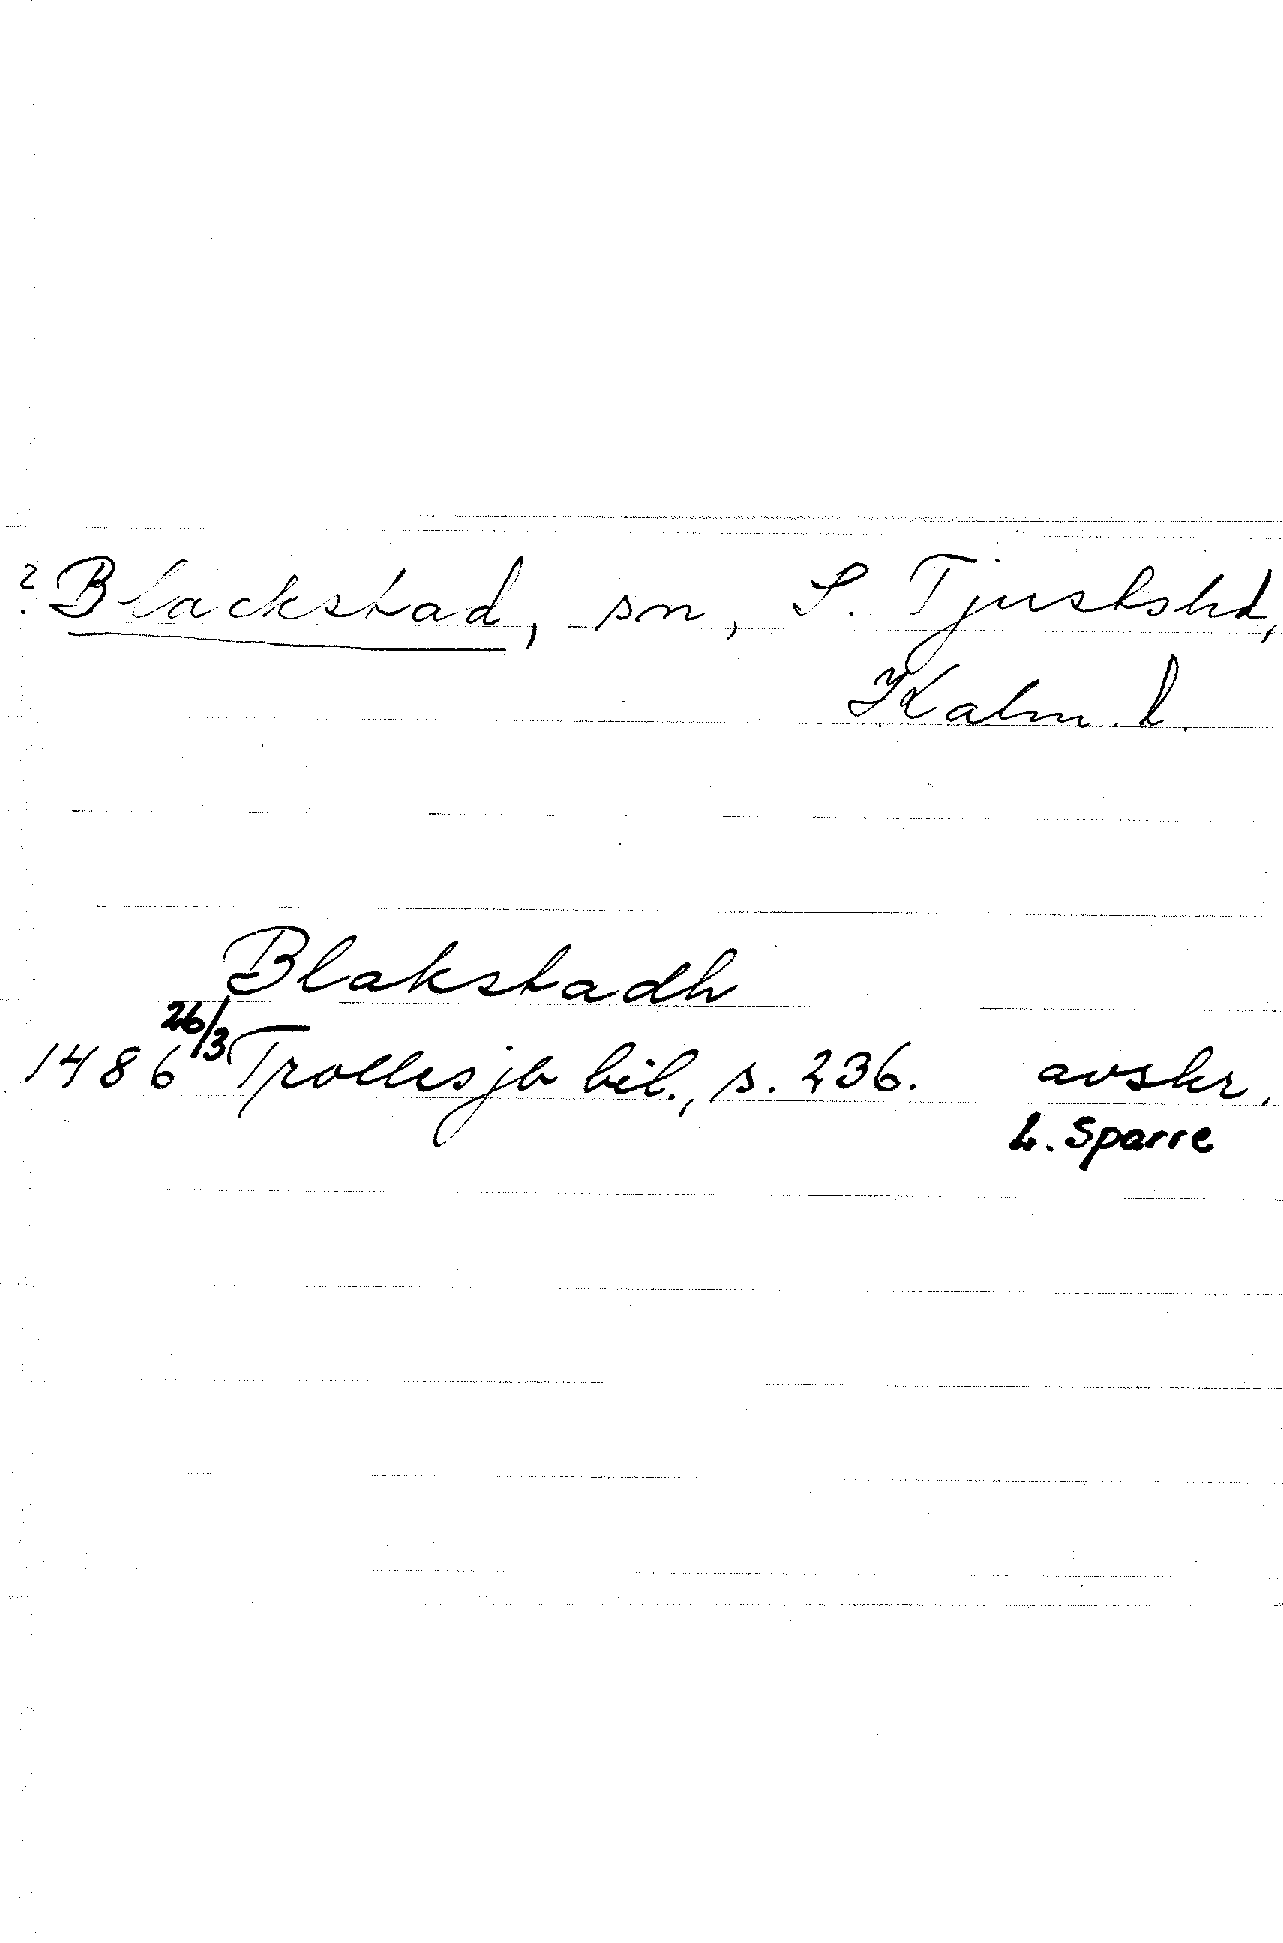 ? Blackstad, sn, S. Tjustshd,
Kalm. l.
Blakstadh
1486 26/3 Trolles jb bil., s. 236. avskr.
L. Sparre